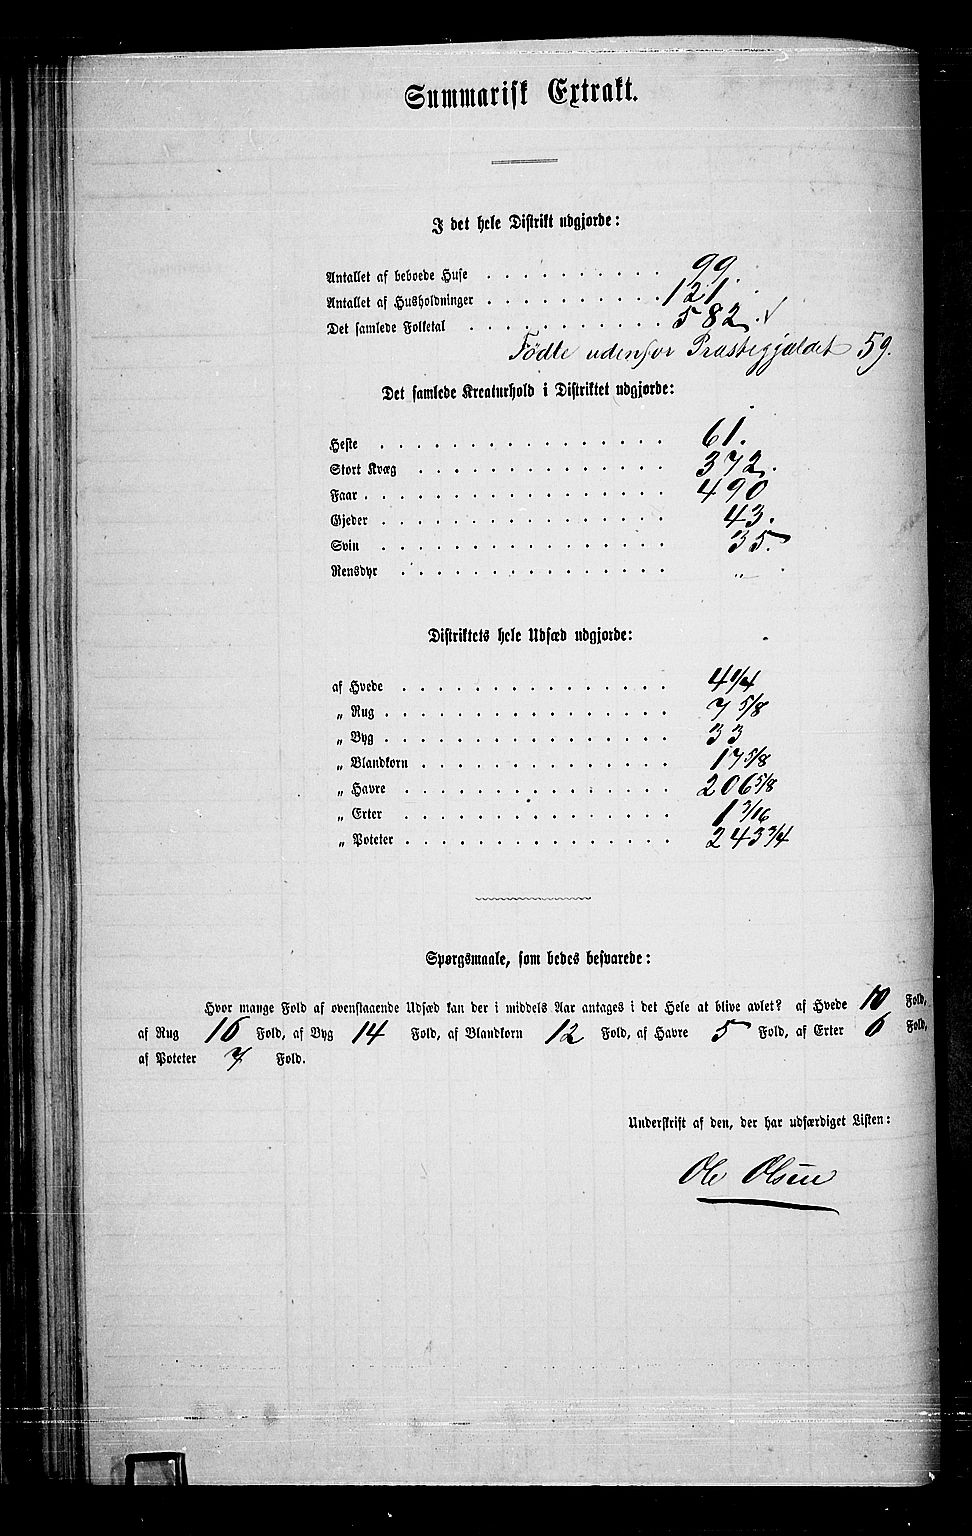 Summarisk Extrakt.
I det hele Distrikt udgjorde:
Antallet af beboede Huse . . . . . . . . . . 99.
Antallet af Husholdninger . . . . . . . . . . 121.
Det samlede Folketal . . . . . . . . . . . 582.
Fødte udenfor Præstegjældet 59.
Det samlede Kreaturhold i Distriktet udgjorde:
Heste . . . . . . . . . . . . . . . . 61.
Stort Kvæg . . . . . . . . . . . . . . 372.
Faar . . . . . . . . . . . . . . . . . 490
Gjeder . . . . . . . . . . . . . . . . 43.
Svin . . . . . . . . . . . . . . . . 35.
Rensdyr . . . . . . . . . . . . . . . „
Distriktets hele Udsæd udgjorde:
af Hvede . . . . . . . . . . . . . . . 4 1/4
„ Rug . . . . . . . . . . . . . . . . 7 5/8
„ Byg . . . . . . . . . . . . . . . . 33
„ Blandkorn . . . . . . . . . . . . . . 17 5/8
„ Havre . . . . . . . . . . . . . . . 206 5/8
„ Erter . . . . . . . . . . . . . . . 1 3/16
„ Poteter . . . . . . . . . . . . . . . 243 3/4
Spørgsmaale, som bedes besvarede:
Hvor mange Fold af ovenstaaende Udsæd kan der i middels Aar antages i det Hele at blive avlet? af Hvede 10 Fold,
af Rug 16 Fold, af Byg 14 Fold, af Blandkorn 12 Fold, af Havre 5 Fold, af Erter 6 Fold,
af Poteter 7 Fold.
Underskrift af den, der har udfærdiget Listen:
Ole Olsen